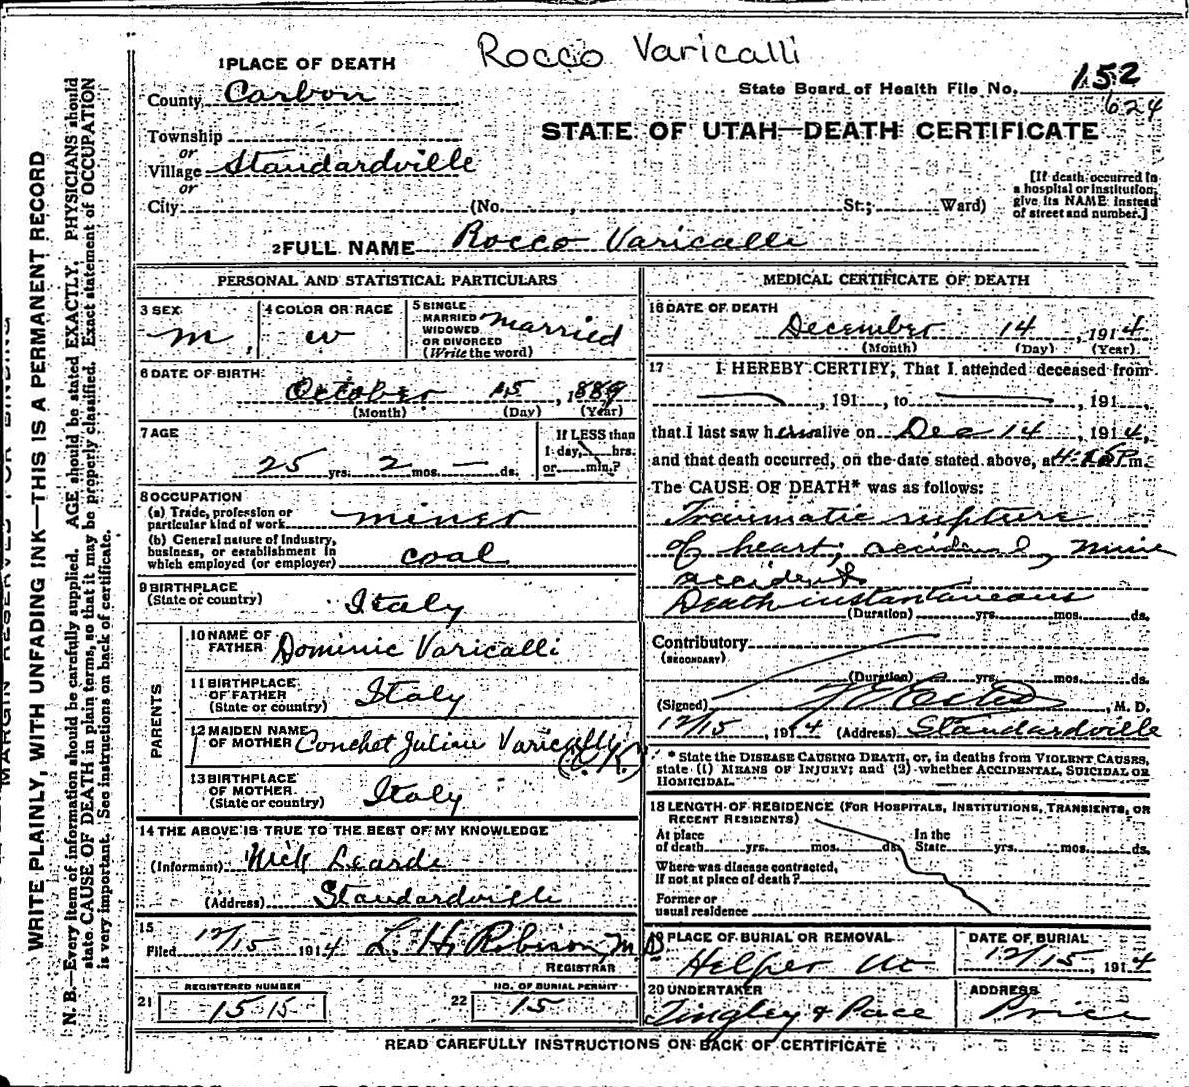 Rocco Varicalli
1 PLACE OF DEATH
County Carbon
State Board of Health File No. 152
624
Township
or
Village Standardville
or
City (No. , St.; Ward)
STATE OF UTAH—DEATH CERTIFICATE
[If death occurred in
a hospital or institution,
give its NAME instead
of street and number.]
2 FULL NAME Rocco Varicalli
PERSONAL AND STATISTICAL PARTICULARS
3 SEX
m
4 COLOR OR RACE
w
5 SINGLE
MARRIED
WIDOWED
OR DIVORCED
(Write the word)
married
6 DATE OF BIRTH
October 15, 1889
(Month) (Day) (Year)
7 AGE
25 yrs. 2 mos. — ds.
If LESS than
1 day, hrs.
or min.?
8 OCCUPATION
(a) Trade, profession or
particular kind of work miner
(b) General nature of industry,
business, or establishment in
which employed (or employer) coal
9 BIRTHPLACE
(State or country) Italy
PARENTS
10 NAME OF
FATHER Dominic Varicalli
11 BIRTHPLACE
OF FATHER
(State or country) Italy
12 MAIDEN NAME
OF MOTHER Conchet Varicalli
(O.K.)
13 BIRTHPLACE
OF MOTHER
(State or country) Italy
14 THE ABOVE IS TRUE TO THE BEST OF MY KNOWLEDGE
(Informant) Nick Learde
(Address) Standardville
15
Filed 12/15 1914 L. H. Robison M D
REGISTRAR
21 REGISTERED NUMBER
15 15
22 NO. OF BURIAL PERMIT
15
MEDICAL CERTIFICATE OF DEATH
16 DATE OF DEATH
December 14, 1914
(Month) (Day) (Year)
17 I HEREBY CERTIFY, That I attended deceased from
, 191 , to , 191 ,
that I last saw him alive on Dec 14, 1914,
and that death occurred, on the date stated above, at P m.
The CAUSE OF DEATH* was as follows:
Traumatic rupture
of heart, accidental, mine
accident
Death instantaneous
(Duration) yrs. mos. ds.
Contributory
(SECONDARY)
(Duration) yrs. mos. ds.
(Signed) , M. D.
12/15, 1914 (Address) Standardville
* State the DISEASE CAUSING DEATH, or, in deaths from VIOLENT CAUSES,
state (1) MEANS OF INJURY; and (2) whether ACCIDENTAL, SUICIDAL OR
HOMICIDAL.
18 LENGTH OF RESIDENCE (FOR HOSPITALS, INSTITUTIONS, TRANSIENTS, OR
RECENT RESIDENTS)
At place
of death yrs. mos. ds.
In the
State yrs. mos. ds.
Where was disease contracted,
If not at place of death?
Former or
usual residence
PLACE OF BURIAL OR REMOVAL
Helper Ut
DATE OF BURIAL
12/15, 1914
20 UNDERTAKER
Tingley & Pace
ADDRESS
Price
READ CAREFULLY INSTRUCTIONS ON BACK OF CERTIFICATE
MARGIN RESERVED FOR BINDING
WRITE PLAINLY, WITH UNFADING INK—THIS IS A PERMANENT RECORD
N. B.—Every item of information should be carefully supplied. AGE should be stated EXACTLY. PHYSICIANS should
state CAUSE OF DEATH in plain terms, so that it may be properly classified. Exact statement of OCCUPATION
is very important. See instructions on back of certificate.